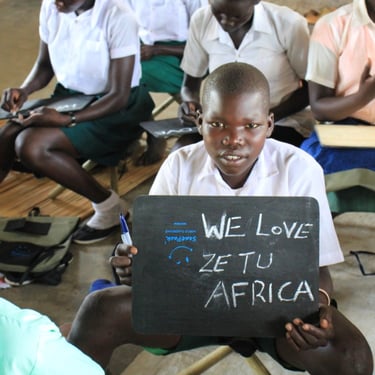 WE LOVE
ZE TU
AFRICA